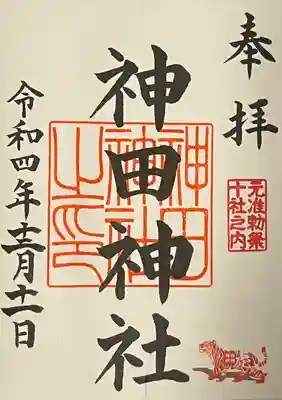 奉拝
元准勅祭
十社之内
神田神社
神田
神社
之印
令和四年十二月十一日